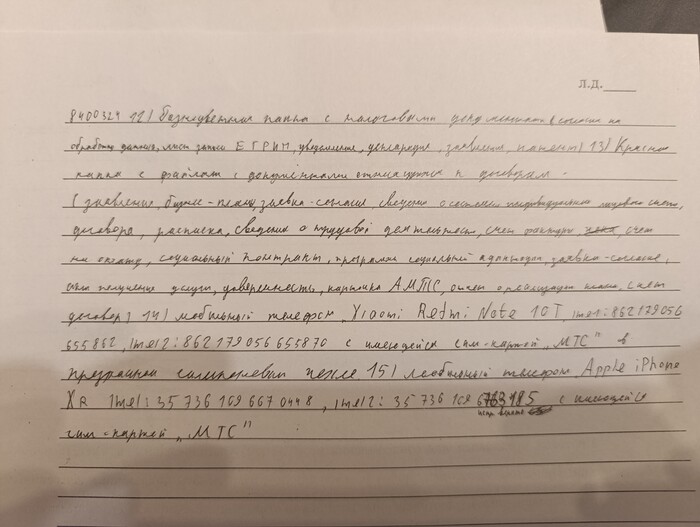 Л.Д.____
8400324 12) Разноцветная папка с налоговыми документами (согласие на
обработку данных, лист записи ЕГРИП, уведомление, декларация, заявление, патент) 13) Красная
папка с файлами с документами относящихся к договорам.
(заявление, бизнес-план, заявка-согласие, сведения о состоянии индивидуального лицевого счета,
договора, расписка, сведения о трудовой деятельности, счет фактуры, счет
на оплату, социальный контракт, программа социальной адаптации, заявка-согласие,
акты получения услуги, доверенность, карточка АМТС, отчет организации, счет
договор) 14) мобильный телефон Xiaomi Redmi Note 10T, imei1: 862179056
655862, imei2: 862179056655870 с имеющейся сим-картой „МТС" в
прозрачном силиконовом чехле 15) мобильный телефон Apple iPhone
XR imei1: 35 736 109 667 0448, imei2: 35 736 109 6763185 с имеющейся
сим-картой „МТС"